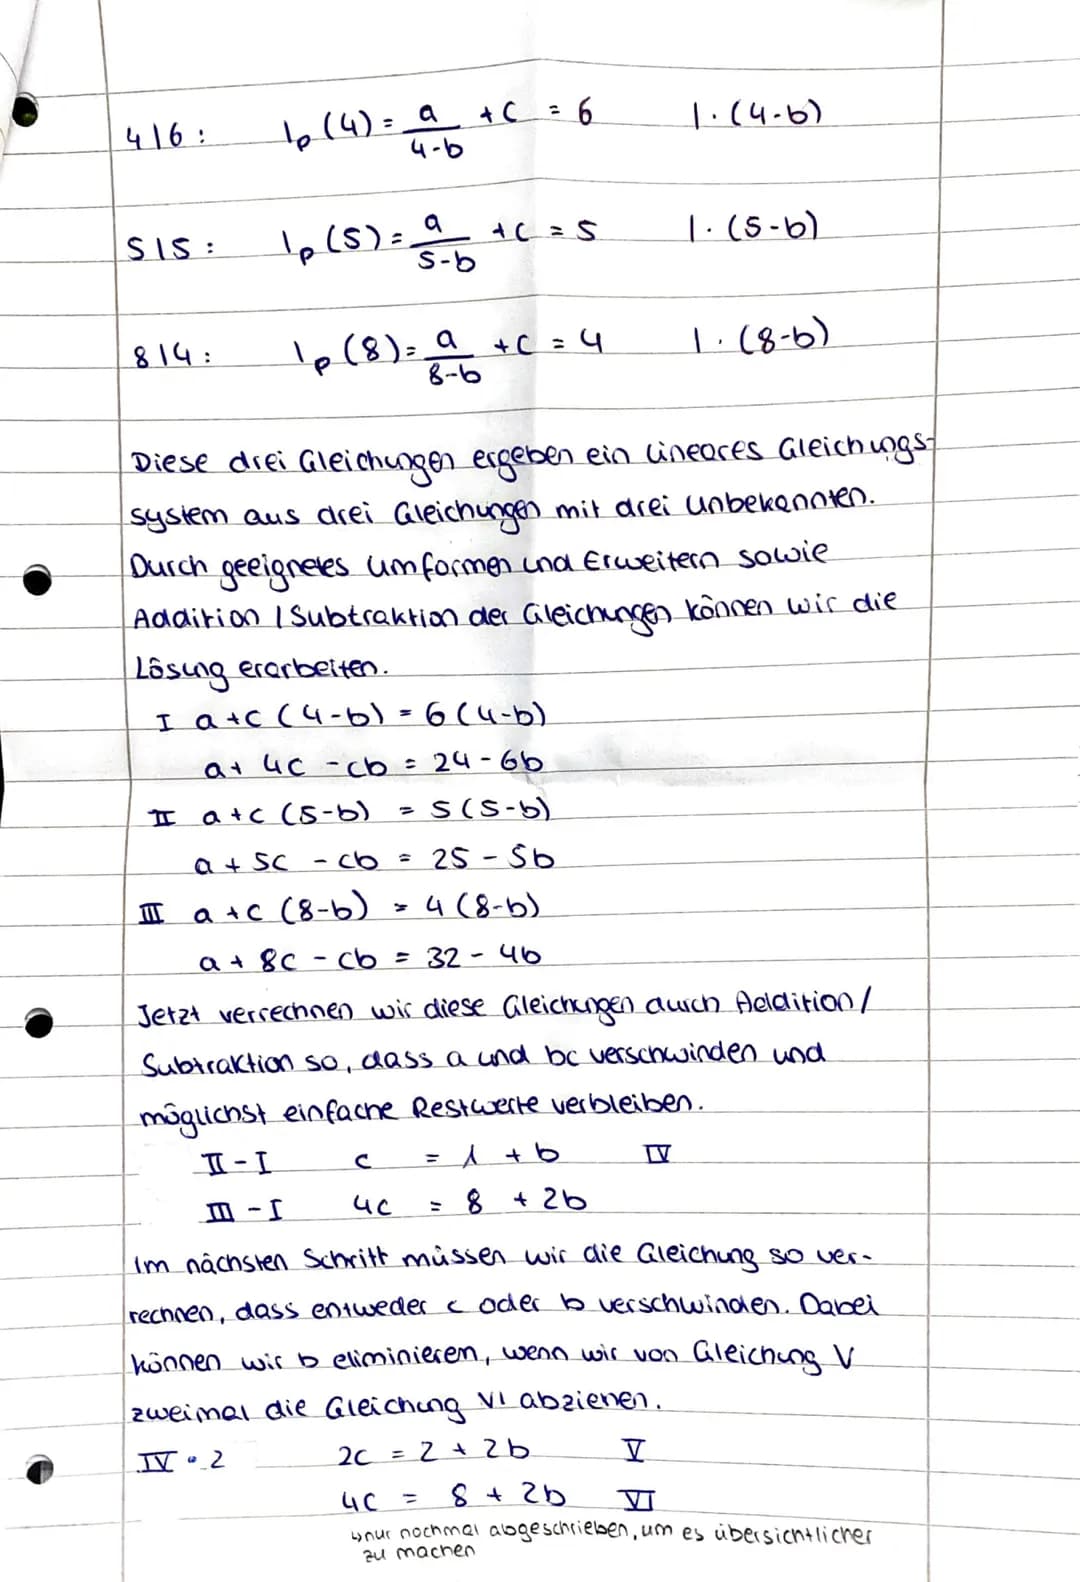 4|6: lp(4) = a/(4-b) + c = 6 |·(4-b)
5|5: lp(5) = a/(5-b) + c = 5 |·(5-b)
8|4: lp(8) = a/(8-b) + c = 4 |·(8-b)
Diese drei Gleichungen ergeben ein lineares Gleichungs-
system aus drei Gleichungen mit drei unbekannten.
Durch geeignetes umformen und Erweitern sowie
Addition / Subtraktion der Gleichungen können wir die
Lösung erarbeiten.
I a+c (4-b) = 6(4-b)
a+ 4c -cb = 24 - 6b
II a+c (5-b) = 5(5-b)
a + 5c - cb = 25 - 5b
III a +c (8-b) = 4 (8-b)
a + 8c - cb = 32 - 4b
Jetzt verrechnen wir diese Gleichungen durch Addition/
Subtraktion so, dass a und bc verschwinden und
möglichst einfache Restwerte verbleiben.
II - I c = 1 + b IV
III - I 4c = 8 + 2b
Im nächsten Schritt müssen wir die Gleichung so ver-
rechnen, dass entweder c oder b verschwinden. Dabei
können wir b eliminieren, wenn wir von Gleichung V
zweimal die Gleichung VI abziehen.
IV · 2 2c = 2 + 2b V
4c = 8 + 2b VI
↳nur nochmal abgeschrieben, um es übersichtlicher
zu machen